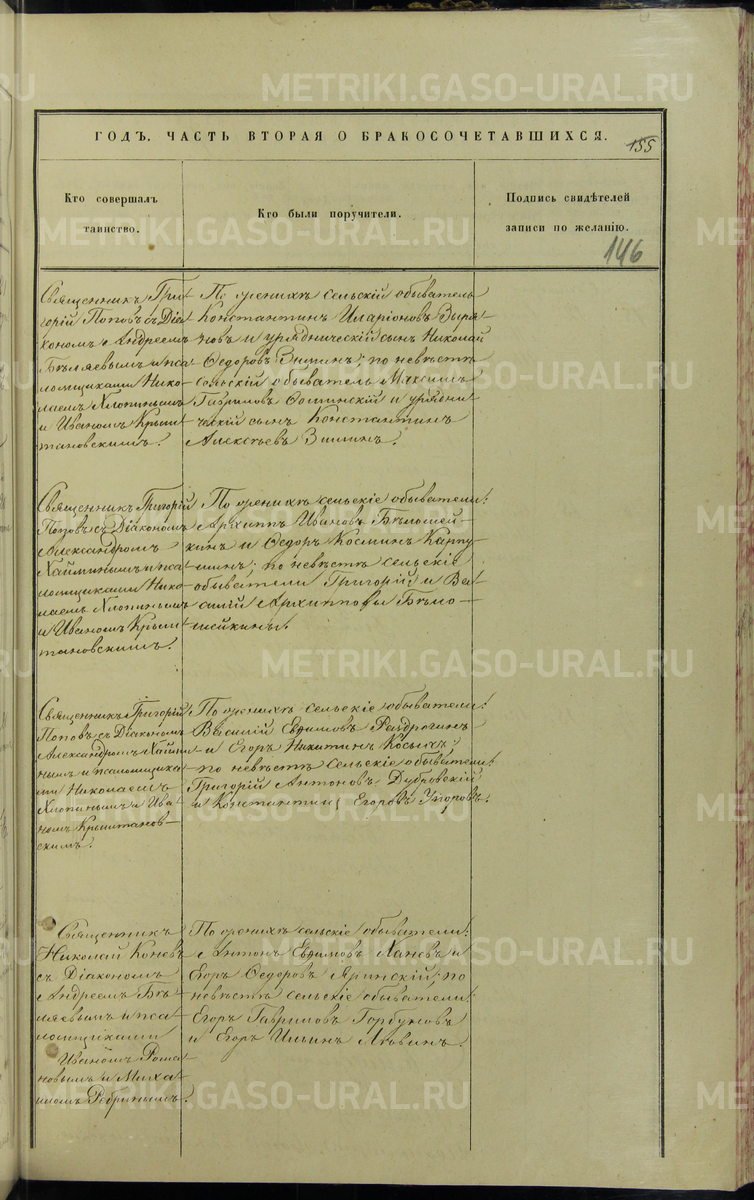 ГОДЪ. ЧАСТЬ ВТОРАЯ О БРАКОСОЧЕТАВШИХСЯ.
155
Кто совершалъ
таинство.
Кто были поручители.
Подпись свидѣтелей
записи по желанію.
146
Священникъ Гри-
горій Поповъ съ Діа-
кономъ Андреемъ
Бѣляевымъ и пса-
ломщиками Нико-
лаемъ Хлопинымъ
и Иваномъ Крыш-
тановскимъ.
По женихѣ сельскій обыватель
Константинъ Иларіоновъ Зыря-
новъ и урядническій сынъ Николай
Ѳедоровъ Зиминъ; по невѣстѣ
сельскій обыватель Максимъ
Гавриловъ и урядни-
ческій сынъ Константинъ
Алексѣевъ Зиминъ.
Священникъ Григорій
Поповъ съ Діакономъ
Александромъ
и пса-
ломщиками Нико-
лаемъ Хлопинымъ
и Иваномъ Крыш-
тановскимъ.
По женихѣ сельскіе обыватели:
Архиппъ Ивановъ Бѣломей-
кинъ и Ѳедоръ Косминъ Карпу-
шинъ; по невѣстѣ сельскіе
обыватели Григорій и Ва-
силій Архипповы Бѣло-
мейкины.
Священникъ Григорій
Поповъ съ Діакономъ
Александромъ
и псаломщика-
ми Николаемъ
Хлопинымъ и Ива-
номъ Крыштанов-
скимъ.
По женихѣ сельскіе обыватели:
Василій Евфимовъ
и Егоръ Никитинъ Косыхъ;
по невѣстѣ сельскіе обыватели:
Григорій Антоновъ Дубровскій
и Константинъ Егоровъ
Священникъ
Николай Коневъ
съ Діакономъ
Андреемъ Бѣ-
ляевымъ и пса-
ломщиками
Иваномъ Рома-
новымъ и Миха-
иломъ
По женихѣ сельскіе обыватели:
Антонъ Евфимовъ и
Егоръ Ѳедоровъ Яринскій; по
невѣстѣ сельскіе обыватели:
Егоръ Гавриловъ Горбуновъ
и Егоръ Ильинъ
METRIKI.GASO-URAL.RU